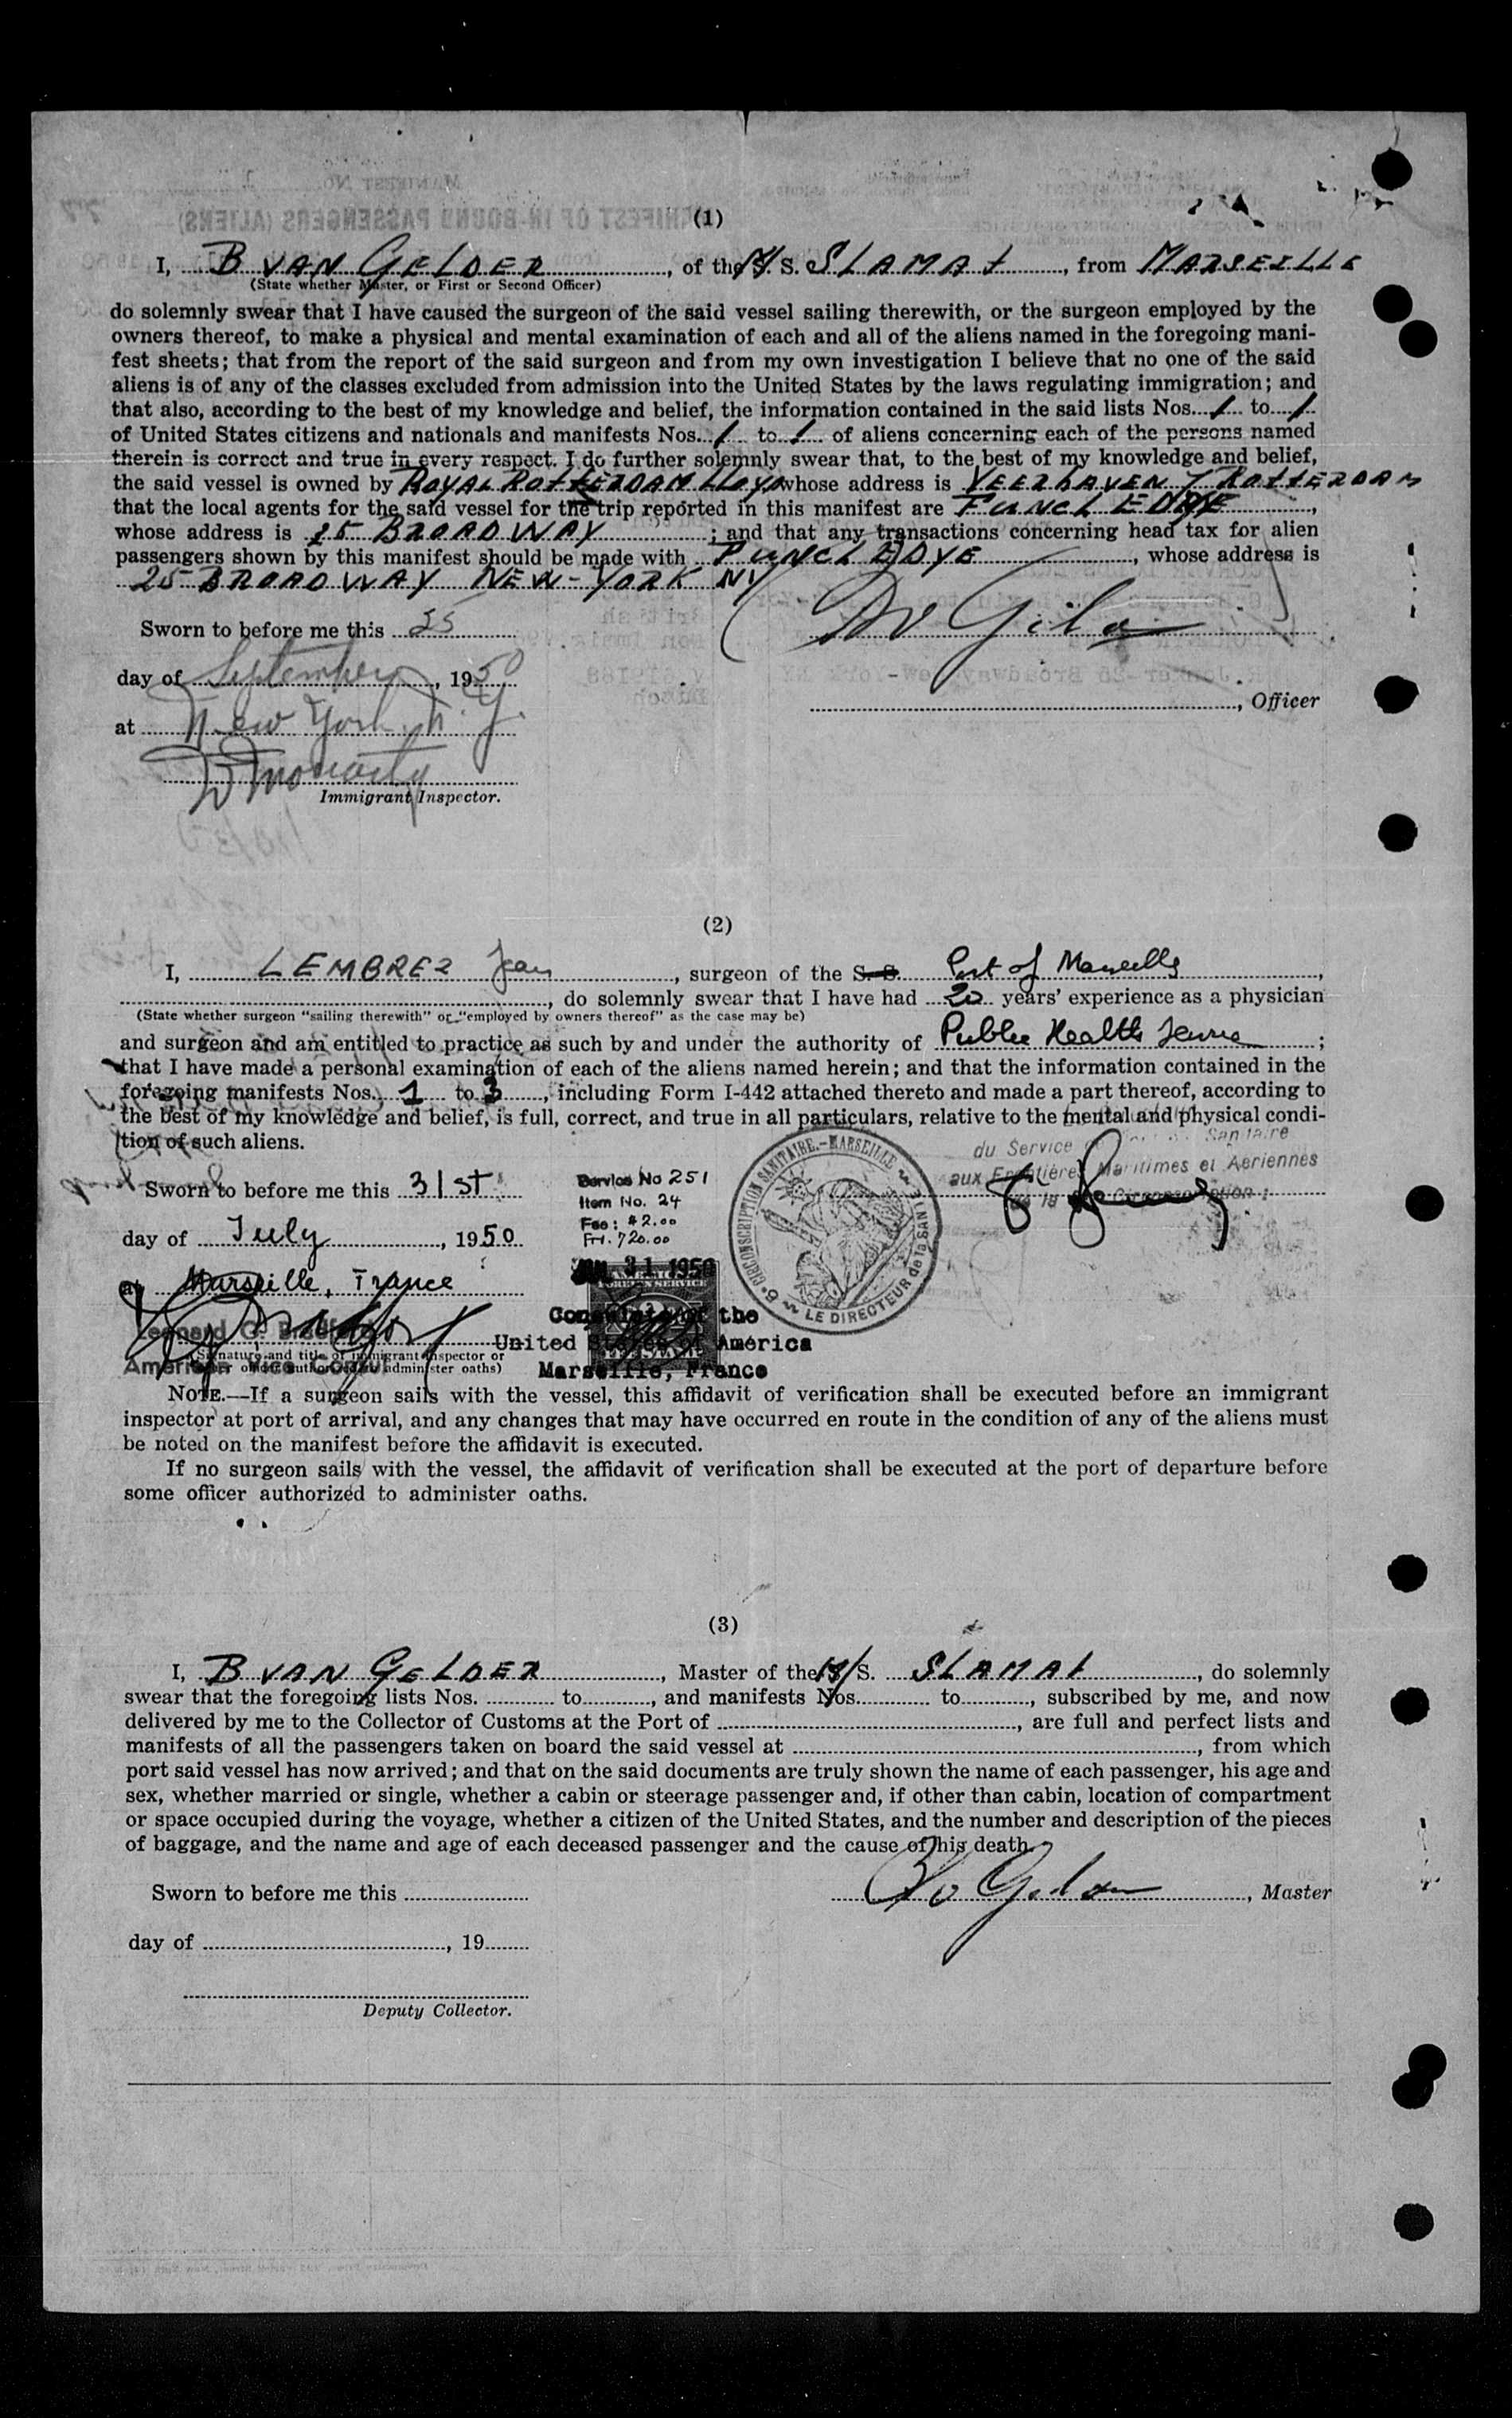 (1)
I, B VAN GELDER, of the M. S. SLAMAT, from MARSEILLE
(State whether Master, or First or Second Officer)
do solemnly swear that I have caused the surgeon of the said vessel sailing therewith, or the surgeon employed by the
owners thereof, to make a physical and mental examination of each and all of the aliens named in the foregoing mani-
fest sheets; that from the report of the said surgeon and from my own investigation I believe that no one of the said
aliens is of any of the classes excluded from admission into the United States by the laws regulating immigration; and
that also, according to the best of my knowledge and belief, the information contained in the said lists Nos. 1 to 1
of United States citizens and nationals and manifests Nos. 1 to 1 of aliens concerning each of the persons named
therein is correct and true in every respect. I do further solemnly swear that, to the best of my knowledge and belief,
the said vessel is owned by ROYAL ROTTERDAM LLOYD whose address is VEERHAVEN 7 ROTTERDAM
that the local agents for the said vessel for the trip reported in this manifest are FUNCH EDYE,
whose address is 25 BROADWAY; and that any transactions concerning head tax for alien
passengers shown by this manifest should be made with FUNCH EDYE, whose address is
25 BROADWAY NEW-YORK NY
Sworn to before me this 25
day of September, 1950
, Officer
at New York, N.Y.
Immigrant Inspector.
(2)
I, LEMBREZ Jean, surgeon of the S. S. Port of Marseille,
, do solemnly swear that I have had 20 years' experience as a physician
(State whether surgeon "sailing therewith" or "employed by owners thereof" as the case may be)
and surgeon and am entitled to practice as such by and under the authority of Public Health Service;
that I have made a personal examination of each of the aliens named herein; and that the information contained in the
foregoing manifests Nos. 1 to 3, including Form I-442 attached thereto and made a part thereof, according to
the best of my knowledge and belief, is full, correct, and true in all particulars, relative to the mental and physical condi-
tion of such aliens.
du Service Sanitaire
aux Frontières Maritimes et Aériennes
Circonscription:
CIRCONSCRIPTION SANITAIRE.-MARSEILLE
LE DIRECTEUR de la SANTE
Sworn to before me this 31st
Service No 251
Item No. 24
Fee: $2.00
Fr. 720.00
day of July, 1950
JUL 31 1950
AMERICAN
FOREIGN SERVICE
at Marseille, France
Consulate of the
United States of America
Marseille, France
Leonard G. Bradford
American Vice Consul
(Signature and title of immigrant inspector or
other officer authorized to administer oaths)
NOTE.—If a surgeon sails with the vessel, this affidavit of verification shall be executed before an immigrant
inspector at port of arrival, and any changes that may have occurred en route in the condition of any of the aliens must
be noted on the manifest before the affidavit is executed.
If no surgeon sails with the vessel, the affidavit of verification shall be executed at the port of departure before
some officer authorized to administer oaths.
(3)
I, B VAN GELDER, Master of the M/S. SLAMAT, do solemnly
swear that the foregoing lists Nos. to, and manifests Nos. to, subscribed by me, and now
delivered by me to the Collector of Customs at the Port of, are full and perfect lists and
manifests of all the passengers taken on board the said vessel at, from which
port said vessel has now arrived; and that on the said documents are truly shown the name of each passenger, his age and
sex, whether married or single, whether a cabin or steerage passenger and, if other than cabin, location of compartment
or space occupied during the voyage, whether a citizen of the United States, and the number and description of the pieces
of baggage, and the name and age of each deceased passenger and the cause of his death.
Sworn to before me this
, Master
day of, 19
Deputy Collector.